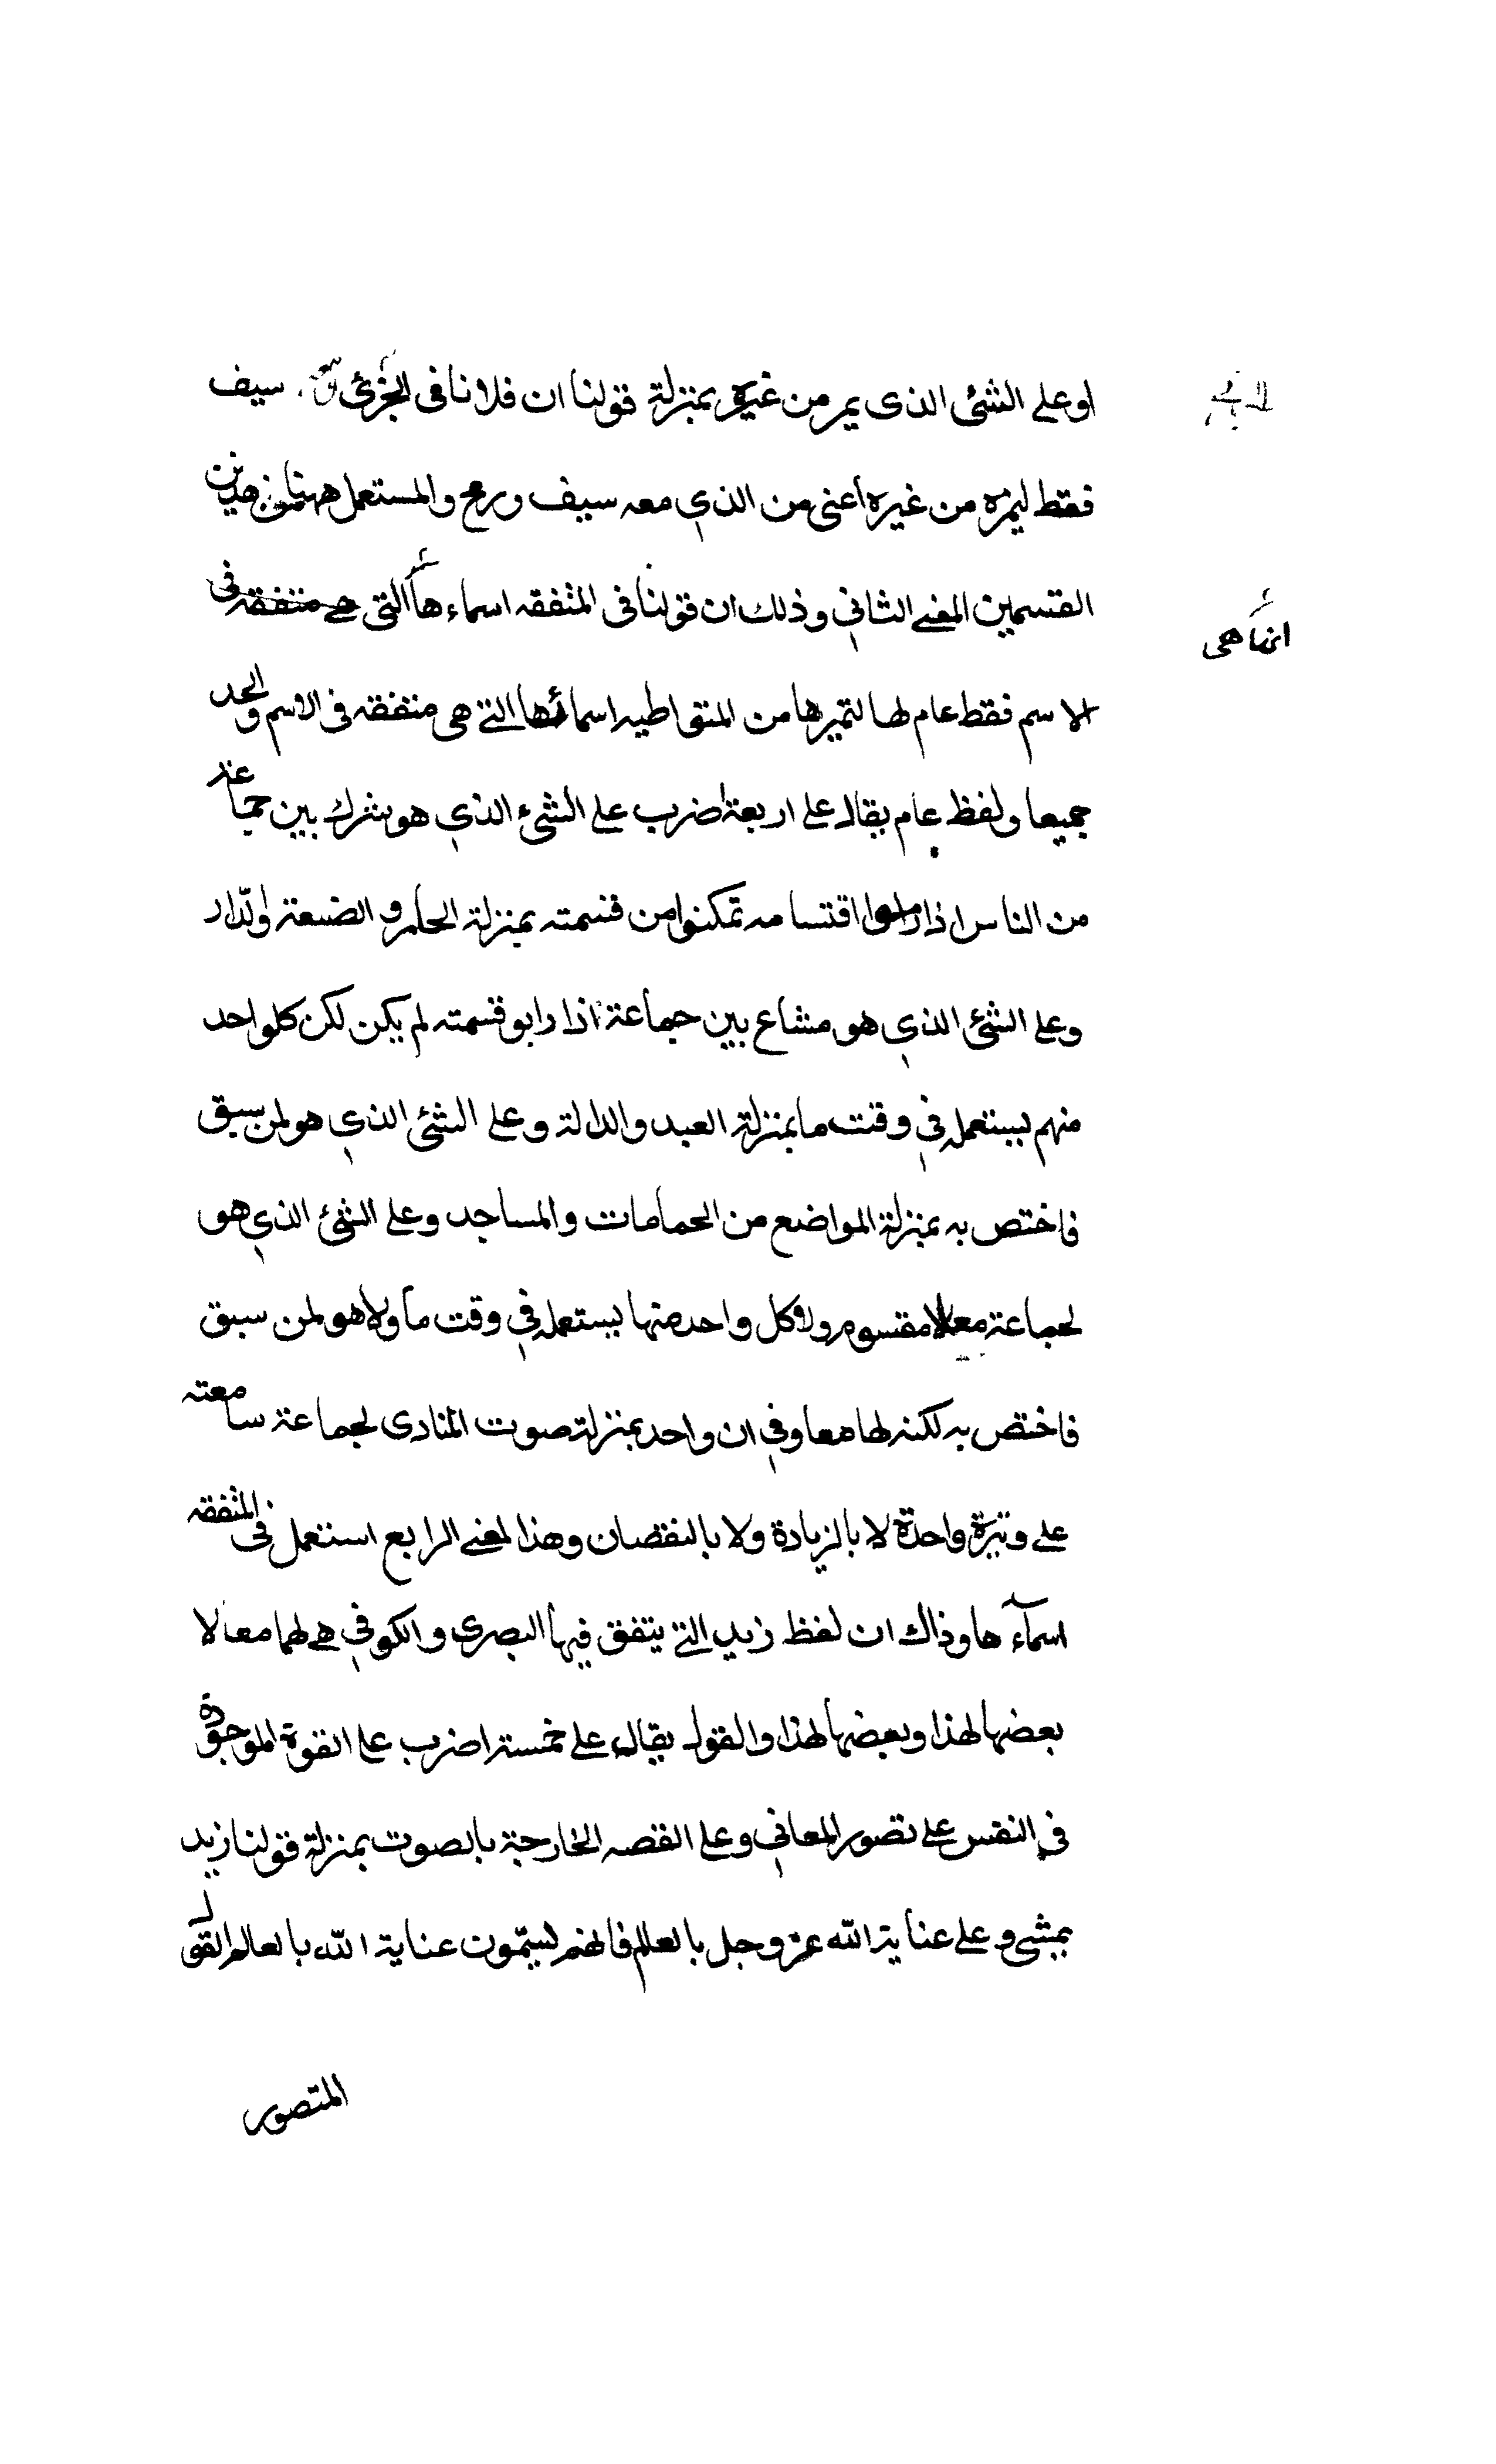 او على الشئ الذى يمر من غيره بمنزلة قولنا ان فلانا فى الجزئ سيف
فقط ليمزه من غيره اعنى من الذي معه سيف ورمح والمستعمل ههنا من هذين
القسمين المعنے الثاني وذلك ان قولنا فى المتفقه اسماءها التى هے متفقه فى
انما هى
الاسم فقط عام لها لتميزها من المتواطيه اسمائها التے هى متفقه فى الاسم والحد
جميعا ولفظ عام يقال على اربعة اضرب على الشىء الذي هو مشرك بين جماعة
من الناس اذا راموا اقتسامه تمكنوا من قسمته بمنزلة الحلم و الضيعة والدار
وعلى الشئ الذي هو مشاع بين جماعة اذا رابو قسمته لم يكن لكن كلواحد
منهم يستعمله في وقت ما بمنزلة العبد والدالة وعلى الشئ الذي هو لمن سبق
فاختص به بمنزلة المواضع من الحمامات والمساجد وعلى الشئ الذي هو
لجماعة معا لا مقسوم ولا كل واحد منها يستعمله في وقت ما ولا هو لمن سبق
فاختص به لكنه لها معا وفي ان واحد بمنزلة صوت المنادى لجماعة سامعته
على وتيرة واحدة لا بالزيادة ولا بالنقصان وهذا المعنے الرابع استعمل فى المتفقه
اسمآء ها وذاك ان لفظ زيد التے يتفق فيها البصرى والكوفي هے لهما معا لا
بعضها لهذا وبعضها لهذا والقول يقال على خمسة اضرب على القوة الموجودة
في النفس على تصور المعاني وعلى القصه الخارجة بالصوت بمنزلة قولنا زيد
يمشى وعلى عناية الله عز وجل بالعالم فانهم ليسمون عناية الله بالعالم القول
المتصور